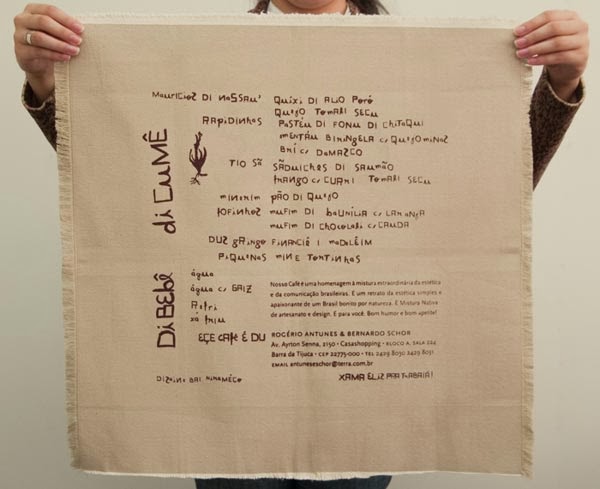 MauricioZ DI NaSSau' QuiXi DI ALiO Poró
QuejO TOMALI SECU
RAPiDiNhOS PaSTÉU DI FONU DI ChiTaQui
MENTÁU BiRiNGELA c/ QuejO MiNaZ
BRÍ c/ DaMAZCO
di CuMÊ
TIO SÃ SÃDuiCheS DI SauMÃO
FRANGO c/ CuaRI TOMALI SECu
MiNeRiM PÃO Di QuejO
FOFiNhoZ MuFiM DI bauNÍLIA c/ LARANJA
MuFiM DI ChOCOLaLi c/ CAUDA
DUZ gRiNgo FiNANCiÊ I MaDELÊiM
PiQueNas MiNE TORTiNhaS
Di BEbÊ
água
água c/ GAiZ
ReFri
xá FRiu
Nosso Café é uma homenagem à mistura extraordinária da estética
e da comunicação brasileiras. É um retrato da estética simples e
apaixonante de um Brasil bonito por natureza. É Mistura Nativa
de artesanato e design. E para você. Bom humor e bom apetite!
EÇE CAFÉ É DU ROGÉRIO ANTUNES & BERNARDO SCHOR
Av. Ayrton Senna, 2150 • Casashopping • BLOCO A, SALA 224
Barra da Tijuca • CEP 22775-000 • TEL 2429 8050 2429 8051
EMAIL antuneseschor@terra.com.br
DiZaiNe BAi NiNAMÉCO XAMA ELiZ PRA TRABAIÁ!